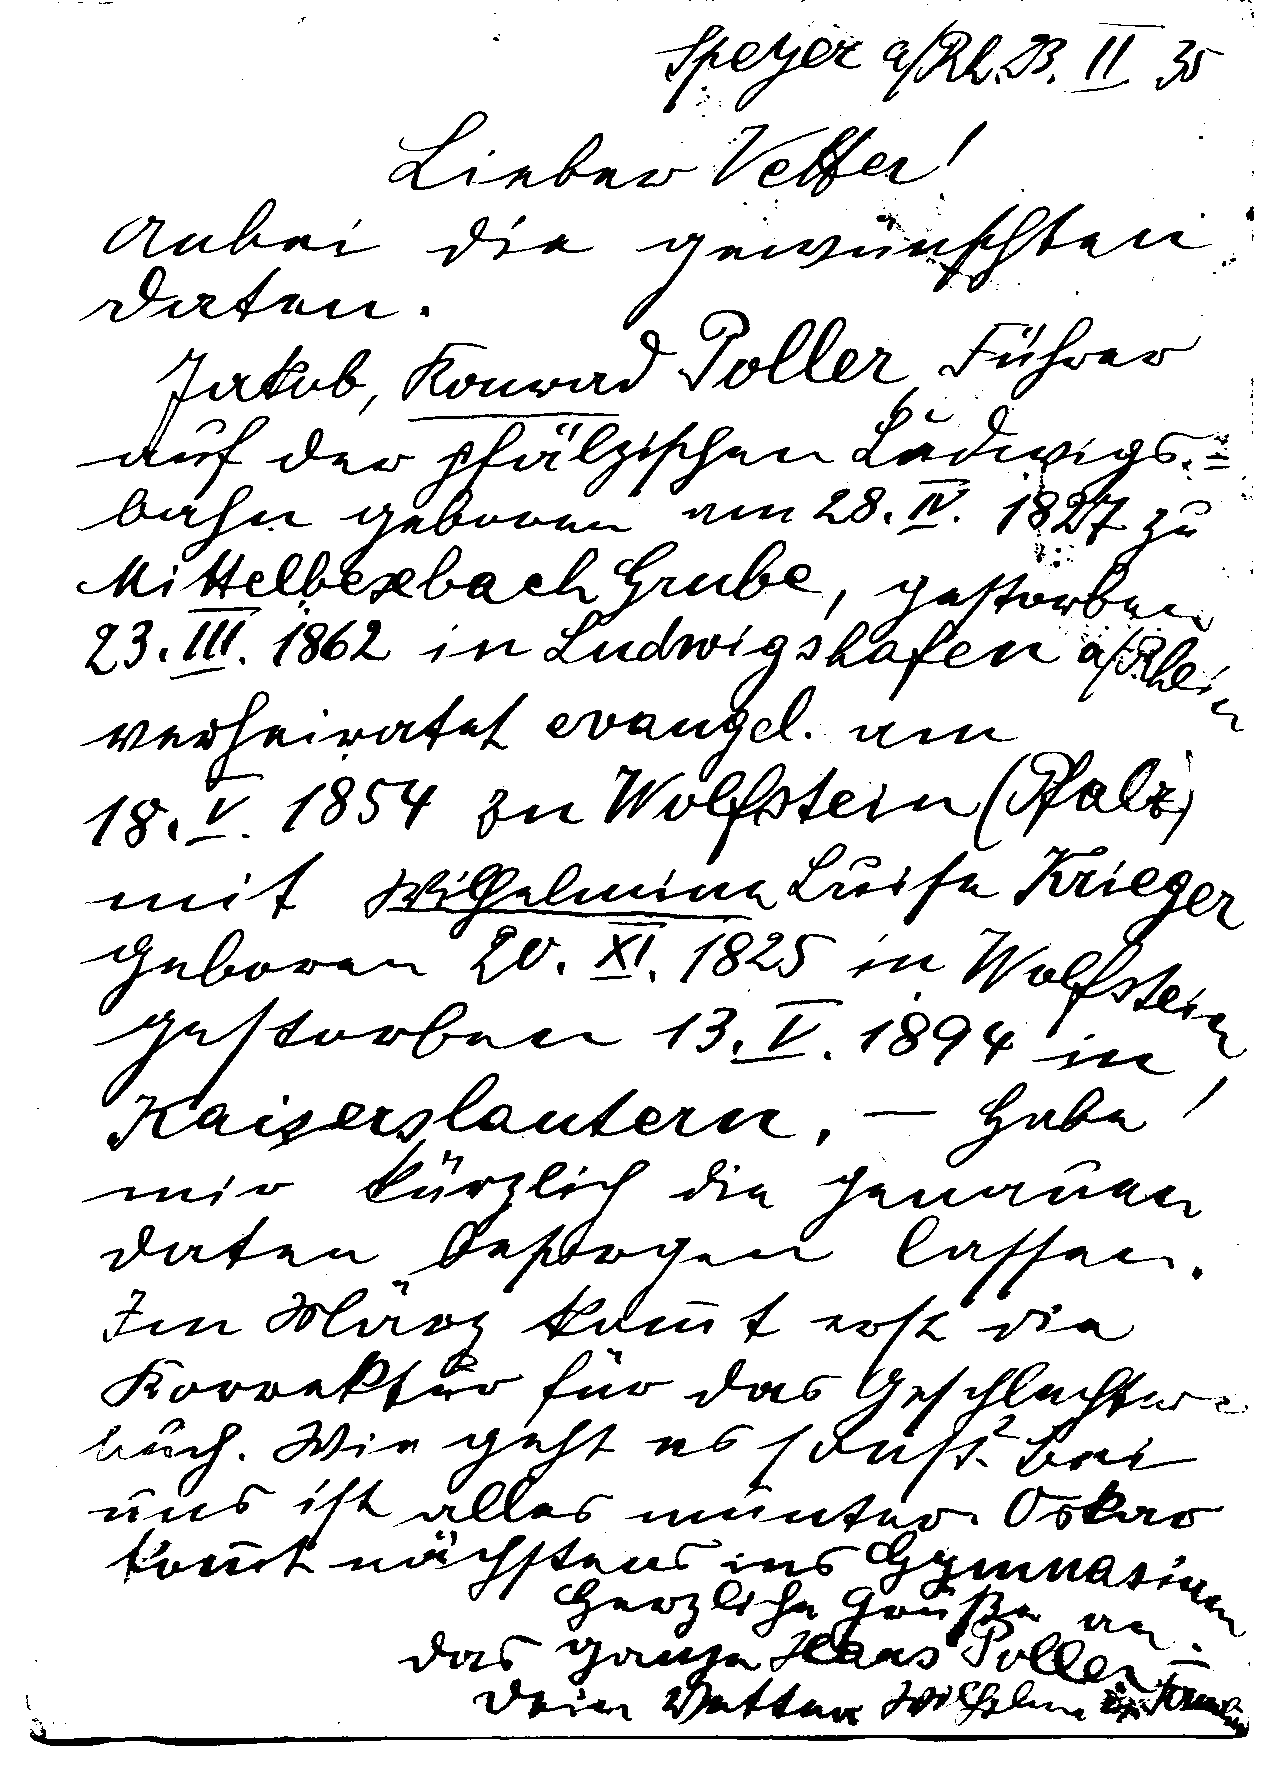 Speyer a/Rh. 23. II 35
Lieber Vetter!
Anbei die gewünschten
Daten.
Jakob, Konrad Poller, Führer
auf der pfälzischen Ludwigs-
bahn geboren am 28. IV. 1827 zu
Mittelbexbach Grube, gestorben
23. III. 1862 in Ludwigshafen a/Rhein
verheiratet evangel. am
18. V. 1854 zu Wolfstein (Pfalz)
mit Wilhelmine Luise Krieger
geboren 20. XI. 1825 in Wolfstein,
gestorben 13. V. 1894 in
Kaiserslautern. — Habe
mir kürzlich die genauen
Daten besorgen lassen.
Im März kom̅t erst die
Korrektur für das Geschlechter-
buch. Wie geht es sonst? Bei
uns ist alles munter. Oskar
kom̅t nächstens ins Gymnasium
Herzliche Grüße an
das ganze Haus Poller
Dein Vetter Wilhelm u. Familie